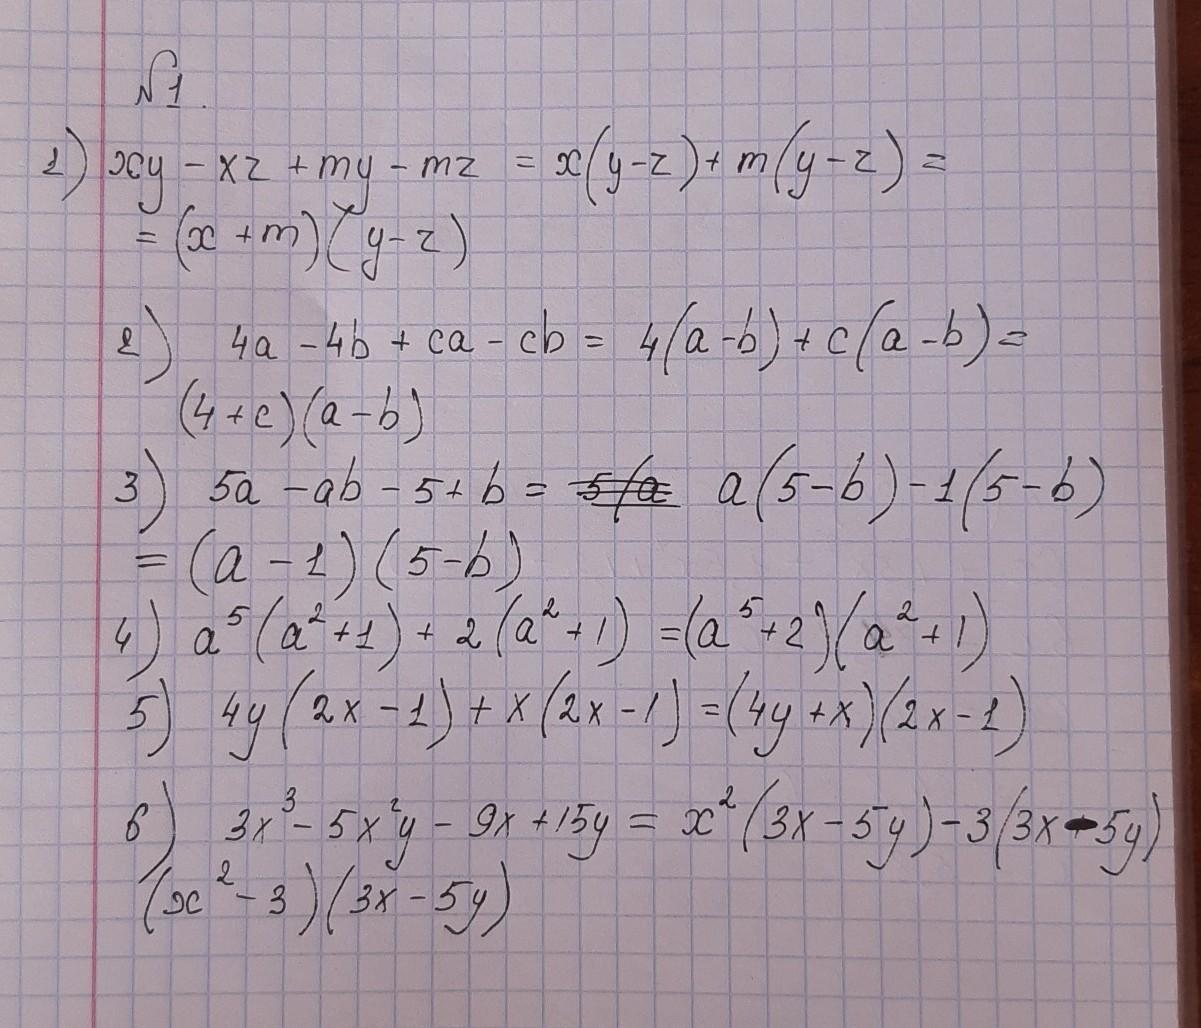 №1.
1) xy - xz + my - mz = x(y-z) + m(y-z) =
= (x + m)(y - z)
2) 4a - 4b + ca - cb = 4(a-b) + c(a-b) =
(4 + c)(a - b)
3) 5a - ab - 5 + b = a(5-b) - 1(5-b)
= (a - 1)(5-b)
4) a⁵(a²+1) + 2(a²+1) = (a⁵+2)(a²+1)
5) 4y(2x-1) + x(2x-1) = (4y+x)(2x-1)
6) 3x³ - 5x²y - 9x + 15y = x²(3x - 5y) - 3(3x - 5y)
(x² - 3)(3x - 5y)